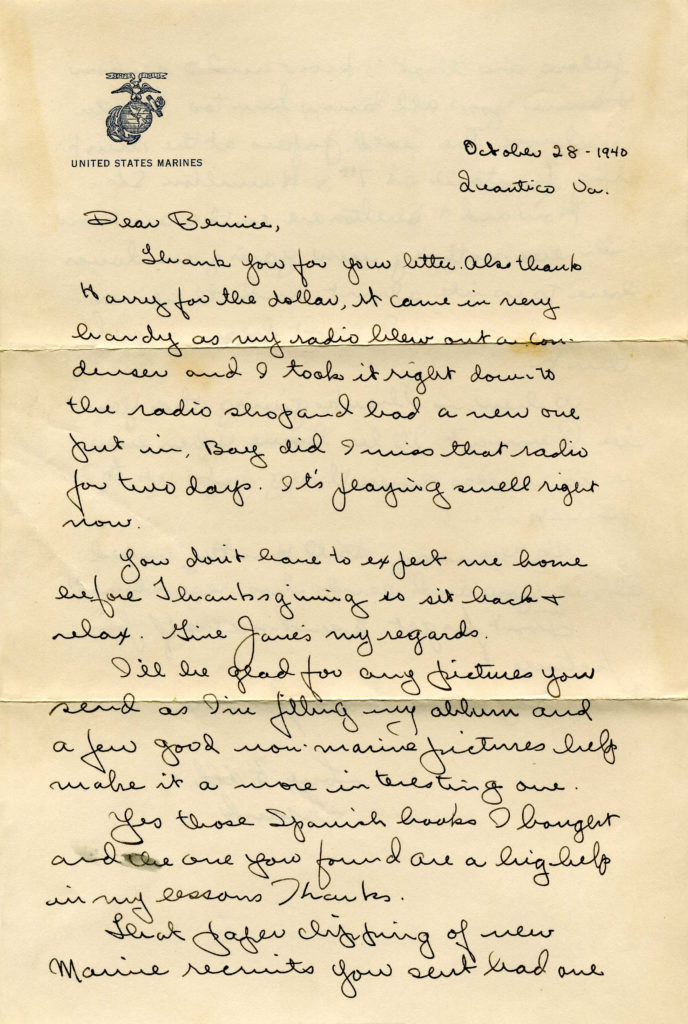 UNITED STATES MARINES
October 28 - 1940
Quantico Va.
Dear Bernice,
Thank you for your letter. Also thank
Harry for the dollar, it came in very
handy as my radio blew out a con-
denser and I took it right down to
the radio shop and had a new one
put in. Boy did I miss that radio
for two days. It's playing swell right
now.
You don't have to expect me home
before Thanksgiving so sit back &
relax. Give Janie's my regards.
I'll be glad for any pictures you
send as I'm filling my album and
a few good non-marine pictures help
make it a more interesting one.
Yes those Spanish books I bought
and the one you found are a big help
in my lessons Thanks.
That paper clipping of new
Marine recruits you sent had one